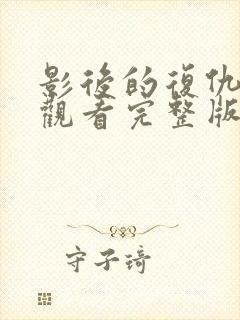 影後的復仇
觀看完整版
守子琦